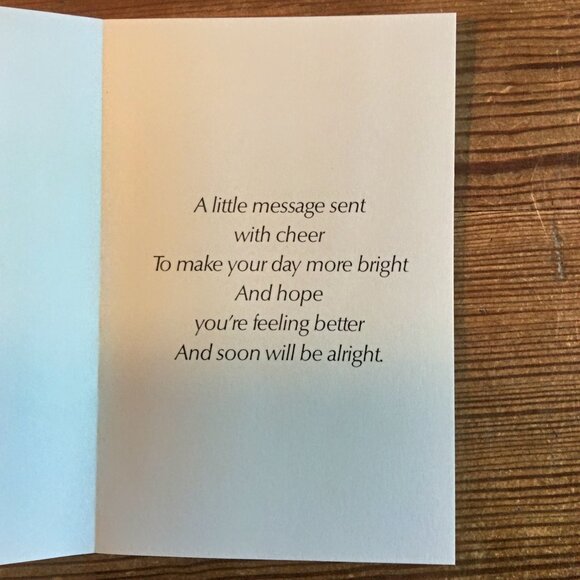 A little message sent
with cheer
To make your day more bright
And hope
you're feeling better
And soon will be alright.